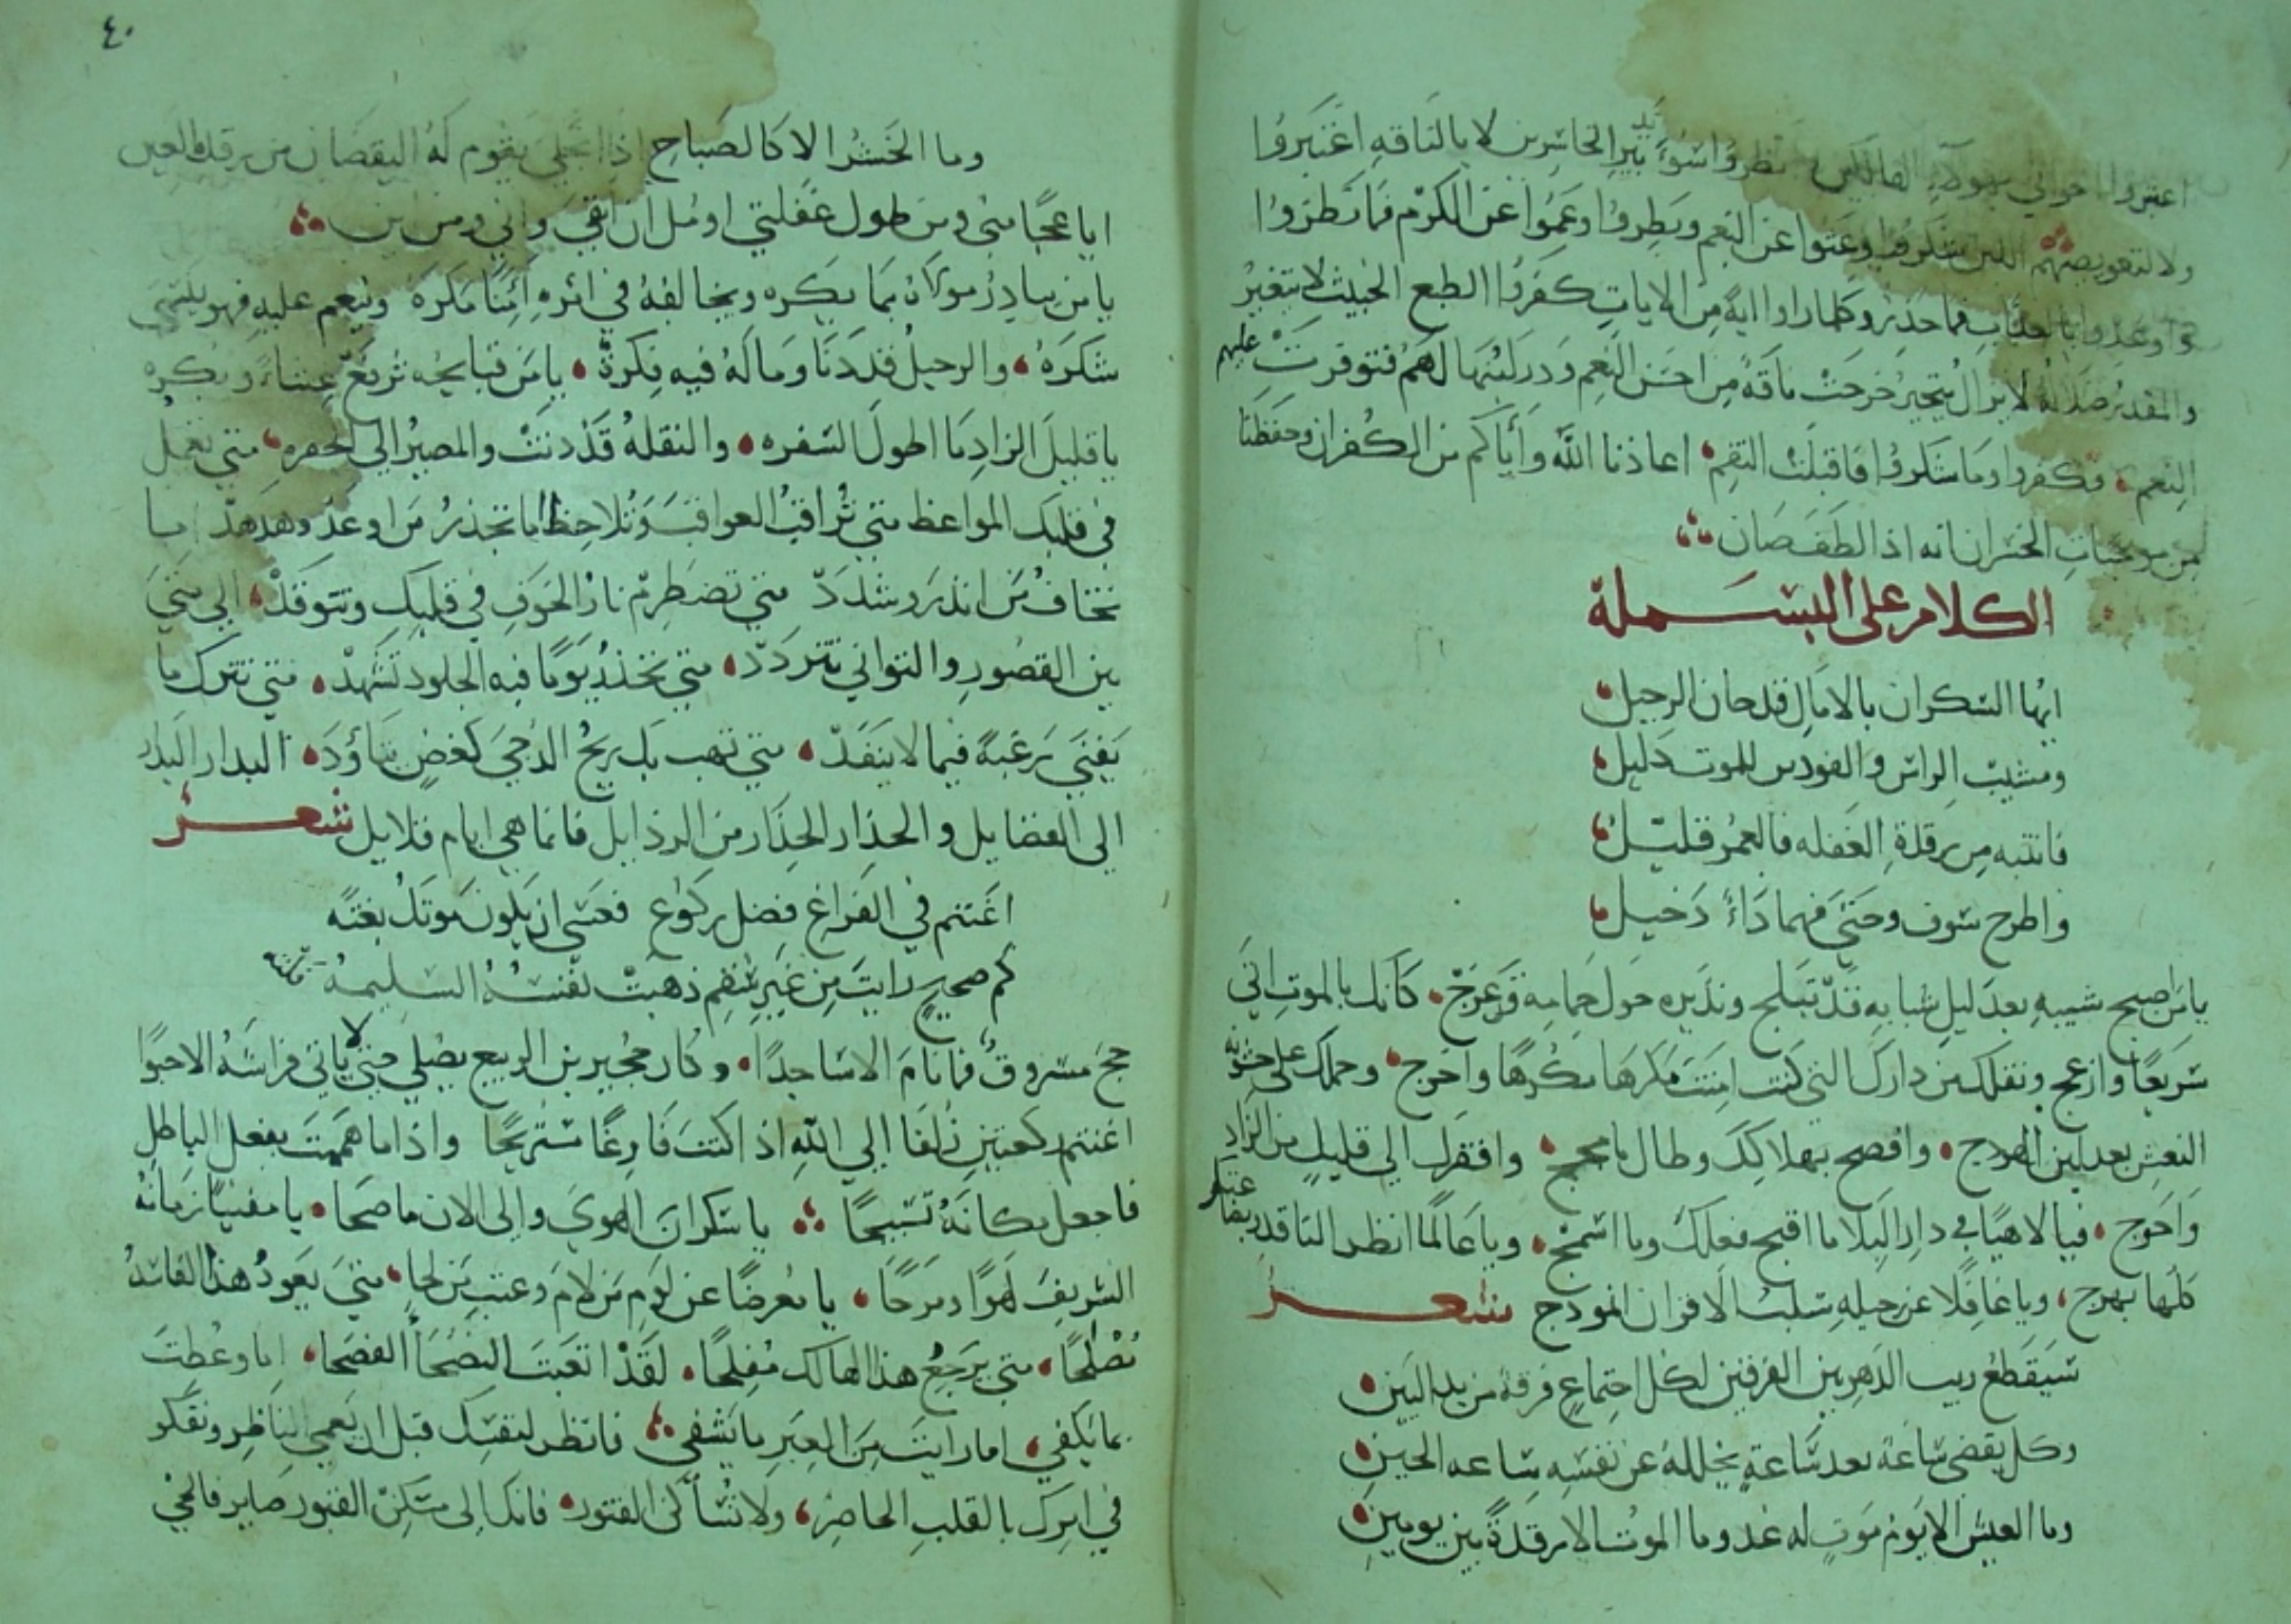 اعتبروا اخواني بهولاء الهالكين نظروا سوء تدبير الخاسرين لا بالناقه اعتبروا
ولا لتعويضهم اللبن شكروا وعتوا عن النعم وبطروا وعموا عن الكرم فما نظروا
واوعدوا بالعذاب فما حذروا وكلما راوا اية من الايات كفروا الطبع الخبيث لا يتغير
والمقدر ضلاله لا يزال يتحير خرجت ناقة من احسن النعم ودر لبنها لهم فتوفرت عليهم
النعم فكفروا وما شكروا فاقبلت النقم اعاذنا الله واياكم من الكفران وحفظنا
من موجبات الخسران انه اذا لطف صان
الكلام على البسملة
ايها السكران بالامال قد حان الرحيل
ومشيب الراس والفودين للموت دليل
فانتبه من رقدة الغفله فالعمر قليل
واطرح سوف وحتى فهما داء دخيل
يا من صبح شيبه بعد ليل شبابه قد تبلج ونذيره حول حمامه قد عرج كانك بالموت اتى
سريعا وازعج ونقلك من دارك التي كنت امنت مكرها مكرها واخرج وحملك على خشونه
النعش بعد لين الهودج وافصح بهلاكك وطال ما مجمج وافقرك الى قليل من الزاد
واحوج فيا لاهيا في دار البلا ما اقبح فعلك وما اسمج ويا عالما انظر الناقد بضاعتك
كلها بهرج ويا غافلا عن رحيله سلب الاقران انموذج شعر
سيقطع ريب الدهر بين الفرقتين لكل اجتماع فرقة من يد البين
وكل يقضي ساعة بعد ساعة يخلله عن نفسه ساعه الحين
وما العيش الا يوم موت له غد وما الموت الا رقدة بين يومين
٤٠
وما الحشر الا كالصباح اذا انجلى يقوم له اليقضان من رقدة العين
ايا عجبا مني ومن طول غفلتي اومل ان ابقى واني ومن اين
يا من يبادر مولاه بما يكره ويخالفه في امره امنا مكره وينعم عليه فهو ينسى
شكره والرحيل قد دنا وما له فيه فكرة يا من قبايحه ترفع عشاء وبكره
يا قليل الزاد ما اطول السفره والنقله قد دنت والمصير الى الحفره متى تعمل
في قلبك المواعظ متى تراقب العواقب وتلاحظ اما تحذر من اوعد وهدد اما
تخاف من انذر وشدد متى تضطرم نار الخوف في قلبك وتتوقد الى متى
بين القصور والتواني تتردد متى تحذر يوما فيه الجلود تشهد متى تترك ما
يفنى رغبة فيما لا ينفد متى تهب بك ريح الدجى كغصن تناود البدار البدار
الى الفضايل والحذار الحذار من الرذايل فانما هي ايام قلايل شعر
اغتنم في الفراغ فضل ركوع فعسى ان يكون موتك بغتة
كم صحيح رايت من غير سقم ذهبت نفسه السليمة فلته
حج مسروق فما نام الا ساجدا وكان حجير بن الربيع يصلي حتى لا ياتي فراشه الا حبوا
اغتنم ركعتين زلفا الى الله اذا كنت فارغا مستريحا واذا ما هممت بفعل الباطل
فاجعل مكانه تسبيحا يا سكران الهوى والى الان ما صحا يا مفنيا زمانه
الشريف لهوا ومرحا يا معرضا عن لوم من لام وعتب من لحا متى يعود هذا الفاسد
مصلحا متى يرجع هذا الهالك مفلحا لقد اتعبت النصحاء الفصحا اما وعظت
بما يكفي اما رايت من العبر ما يشفي فانظر لنفسك قبل ان يعمى الناظر وتفكر
في امرك بالقلب الحاضر ولا تساكن الفتور فانك الى مسكن القبور صاير فالحي